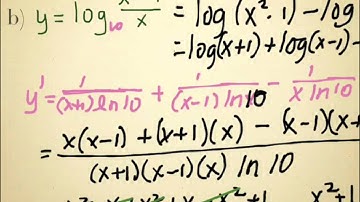 b) y = log₁₀ (x²-1)/x = log(x²-1) - log
= log(x+1) + log(x-1) -
y' = 1/((x+1) ln 10) + 1/((x-1) ln 10) - 1/(x ln 10)
= (x(x-1) + (x+1)(x) - (x-1)(x+
/((x+1)(x-1)(x) ln 10)